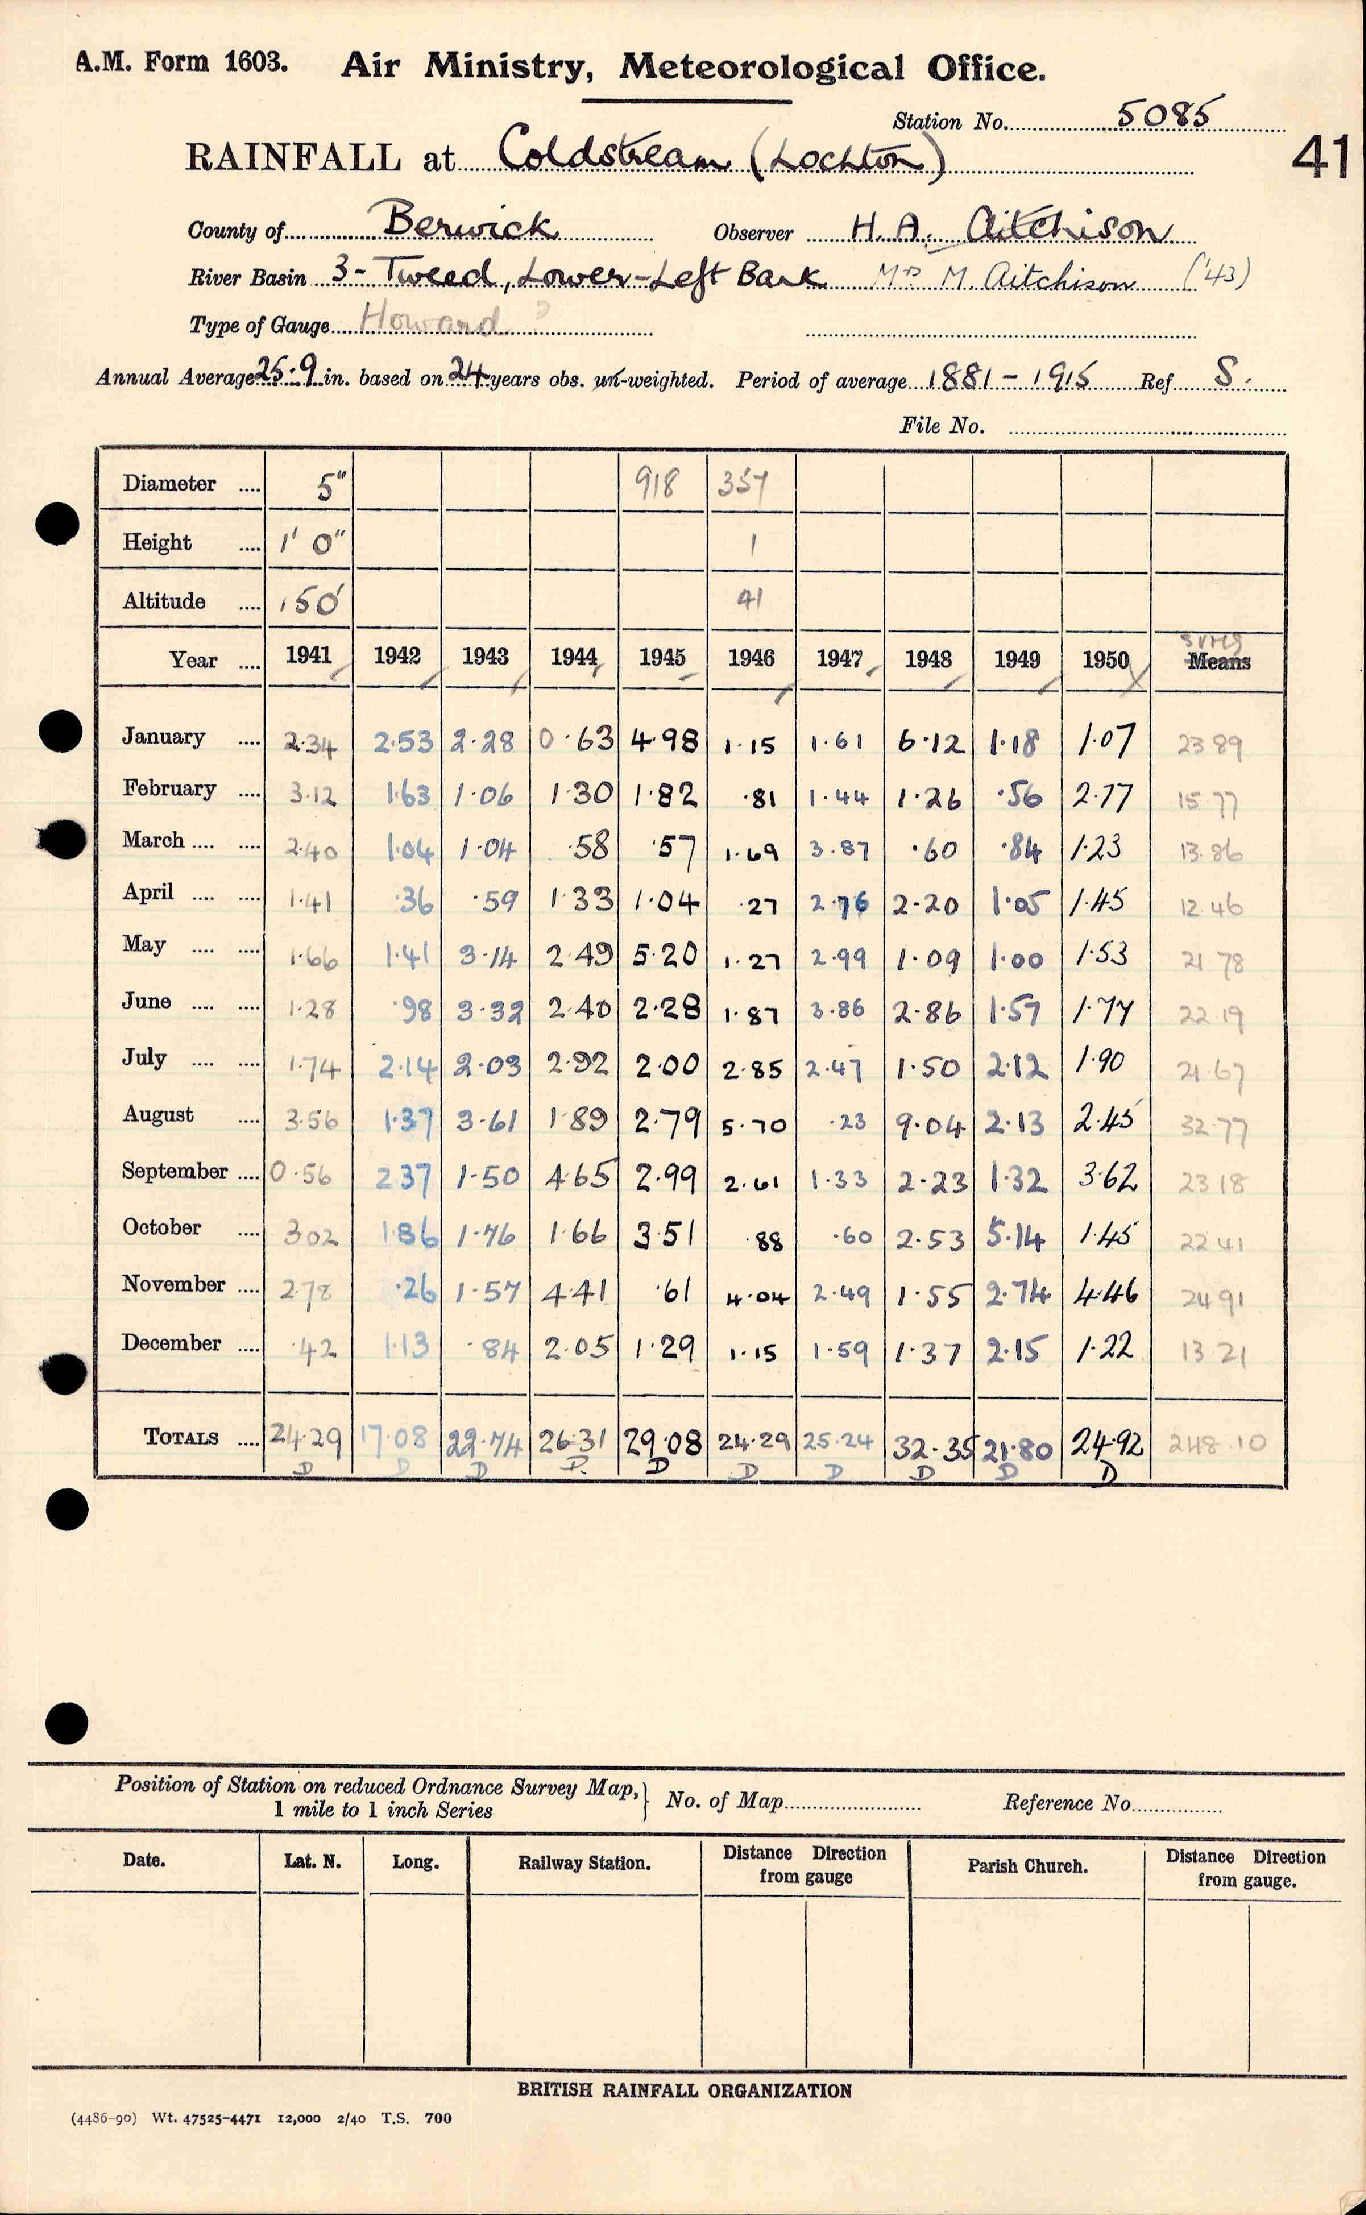 A.M. Form 1603. Air Ministry, Meteorological Office.
Station No. 5085
41
RAINFALL at Coldstream (Lochton)
County of Berwick Observer H. A. Aitchison
River Basin 3 - Tweed, Lower - Left Bank Mrs M. Aitchison ('43)
Type of Gauge Howard ?
Annual Average 25.9 in. based on 24 years obs. un-weighted. Period of average 1881 - 1915 Ref S.
File No.
Diameter .... 5" 918 357
Height .... 1' 0" 1
Altitude .... 150' 41
Year .... 1941 1942 1943 1944 1945 1946 1947 1948 1949 1950 Sums Means
January .... 2.34 2.53 2.28 0.63 4.98 1.15 1.61 6.12 1.18 1.07 23 89
February .... 3.12 1.63 1.06 1.30 1.82 .81 1.44 1.26 .56 2.77 15 77
March .... .... 2.40 1.04 1.04 .58 .57 1.69 3.87 .60 .84 1.23 13.86
April .... .... 1.41 .36 .59 1.33 1.04 .27 2.76 2.20 1.05 1.45 12.46
May .... .... 1.66 1.41 3.14 2.49 5.20 1.27 2.99 1.09 1.00 1.53 21 78
June .... .... 1.28 .98 3.32 2.40 2.28 1.87 3.86 2.86 1.57 1.77 22 19
July .... .... 1.74 2.14 2.03 2.92 2.00 2.85 2.47 1.50 2.12 1.90 21.67
August .... 3.56 1.37 3.61 1.89 2.79 5.70 .23 9.04 2.13 2.45 32.77
September .... 0.56 2.37 1.50 4.65 2.99 2.61 1.33 2.23 1.32 3.62 23 18
October .... 3 02 1.86 1.76 1.66 3.51 .88 .60 2.53 5.14 1.45 22 41
November .... 2.78 .26 1.57 4.41 .61 4.04 2.49 1.55 2.74 4.46 24 91
December .... .42 1.13 .84 2.05 1.29 1.15 1.59 1.37 2.15 1.22 13 21
TOTALS .... 24.29 17.08 22.74 26.31 29.08 24.29 25.24 32.35 21.80 24.92 248.10
D D D D. D D D D D D
Position of Station on reduced Ordnance Survey Map, 1 mile to 1 inch Series } No. of Map Reference No
Date. Lat. N. Long. Railway Station. Distance Direction from gauge Parish Church. Distance Direction from gauge.
BRITISH RAINFALL ORGANIZATION
(4486-90) Wt. 47525-4471 12,000 2/40 T.S. 700